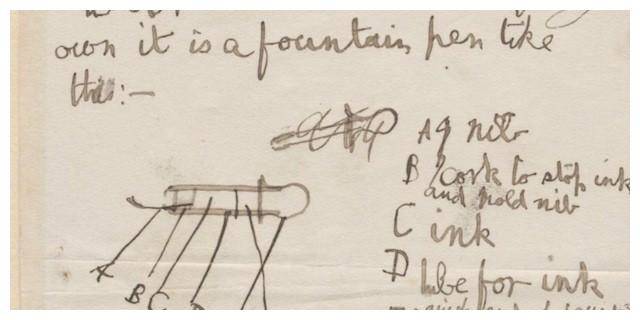 own it is a fountain pen like
this:—
A nib
B cork to stop ink
and hold nib
C ink
D tube for ink
A
B
C
D